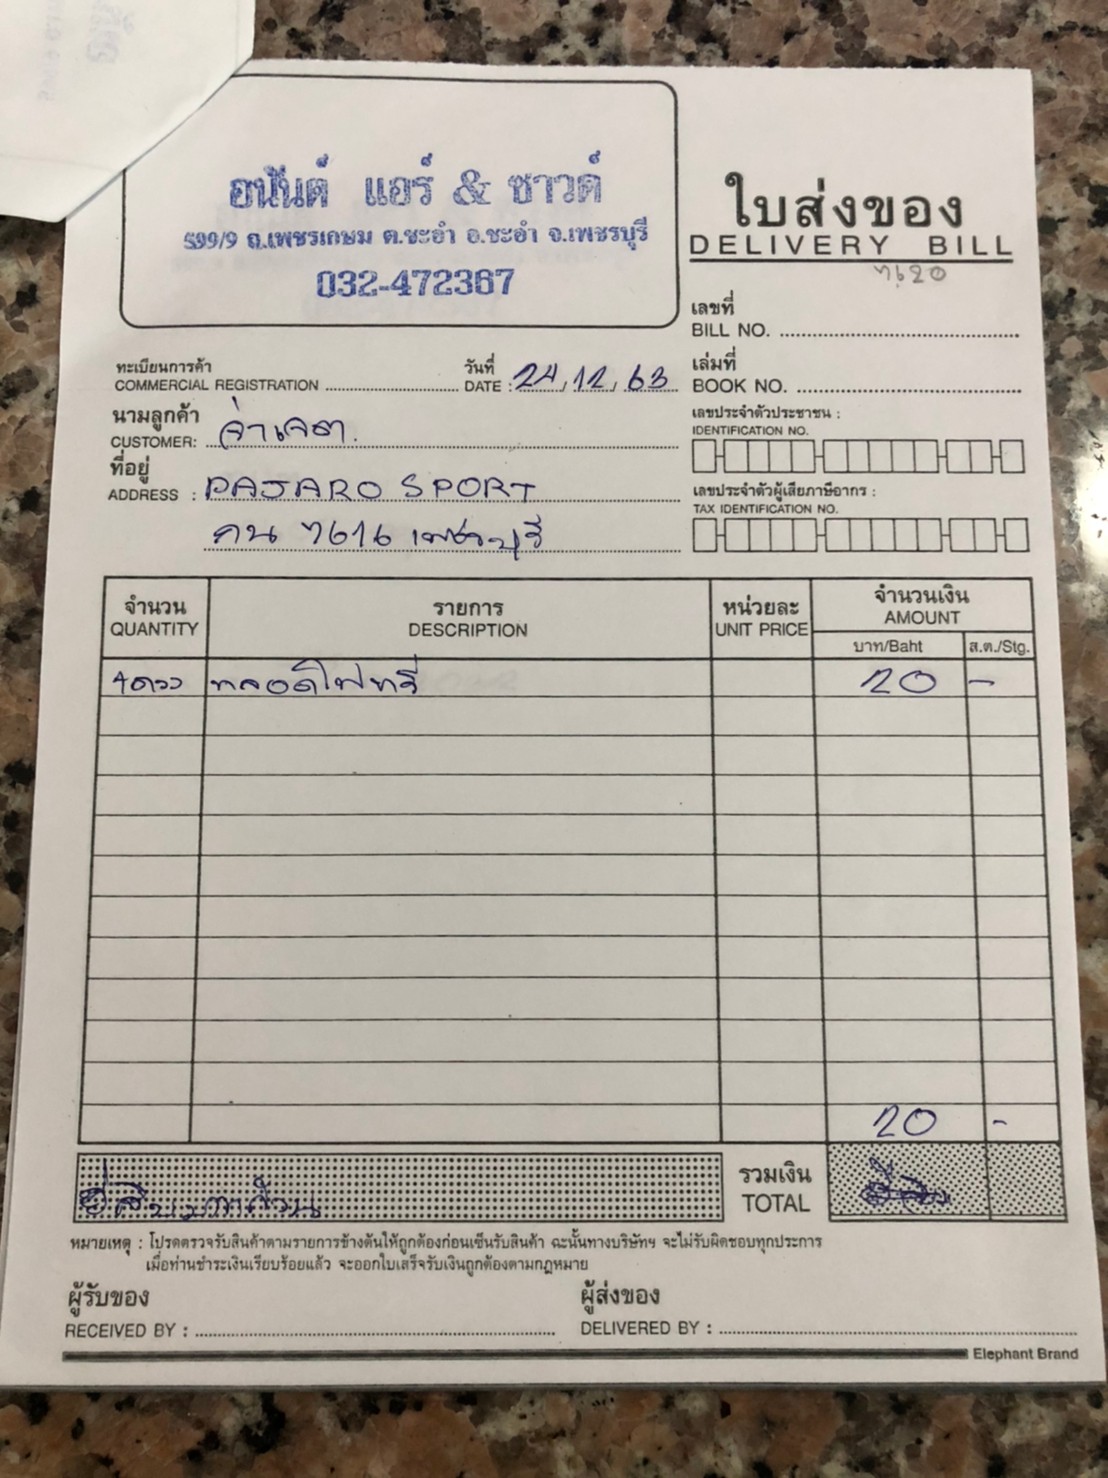 อนันต์ แอร์ & ซาวด์
599/9 ถ.เพชรเกษม ต.ชะอำ อ.ชะอำ จ.เพชรบุรี
032-472367
ใบส่งของ
DELIVERY BILL
เลขที่
BILL NO.
ทะเบียนการค้า
COMMERCIAL REGISTRATION
วันที่
DATE : 24, 12, 63
เล่มที่
BOOK NO.
นามลูกค้า
CUSTOMER: จ่าเจต.
เลขประจำตัวประชาชน :
IDENTIFICATION NO.
ที่อยู่
ADDRESS : PAJARO SPORT
กน 7616 เพชรบุรี
เลขประจำตัวผู้เสียภาษีอากร :
TAX IDENTIFICATION NO.
จำนวน
QUANTITY
รายการ
DESCRIPTION
หน่วยละ
UNIT PRICE
จำนวนเงิน
AMOUNT
บาท/Baht
ส.ต./Stg.
หลอดไฟหรี่ 20 -
20 -
รวมเงิน
TOTAL
หมายเหตุ : โปรดตรวจรับสินค้าตามรายการข้างต้นให้ถูกต้องก่อนเซ็นรับสินค้า ฉะนั้นทางบริษัทฯ จะไม่รับผิดชอบทุกประการ
เมื่อท่านชำระเงินเรียบร้อยแล้ว จะออกใบเสร็จรับเงินถูกต้องตามกฎหมาย
ผู้รับของ
RECEIVED BY :
ผู้ส่งของ
DELIVERED BY :
Elephant Brand